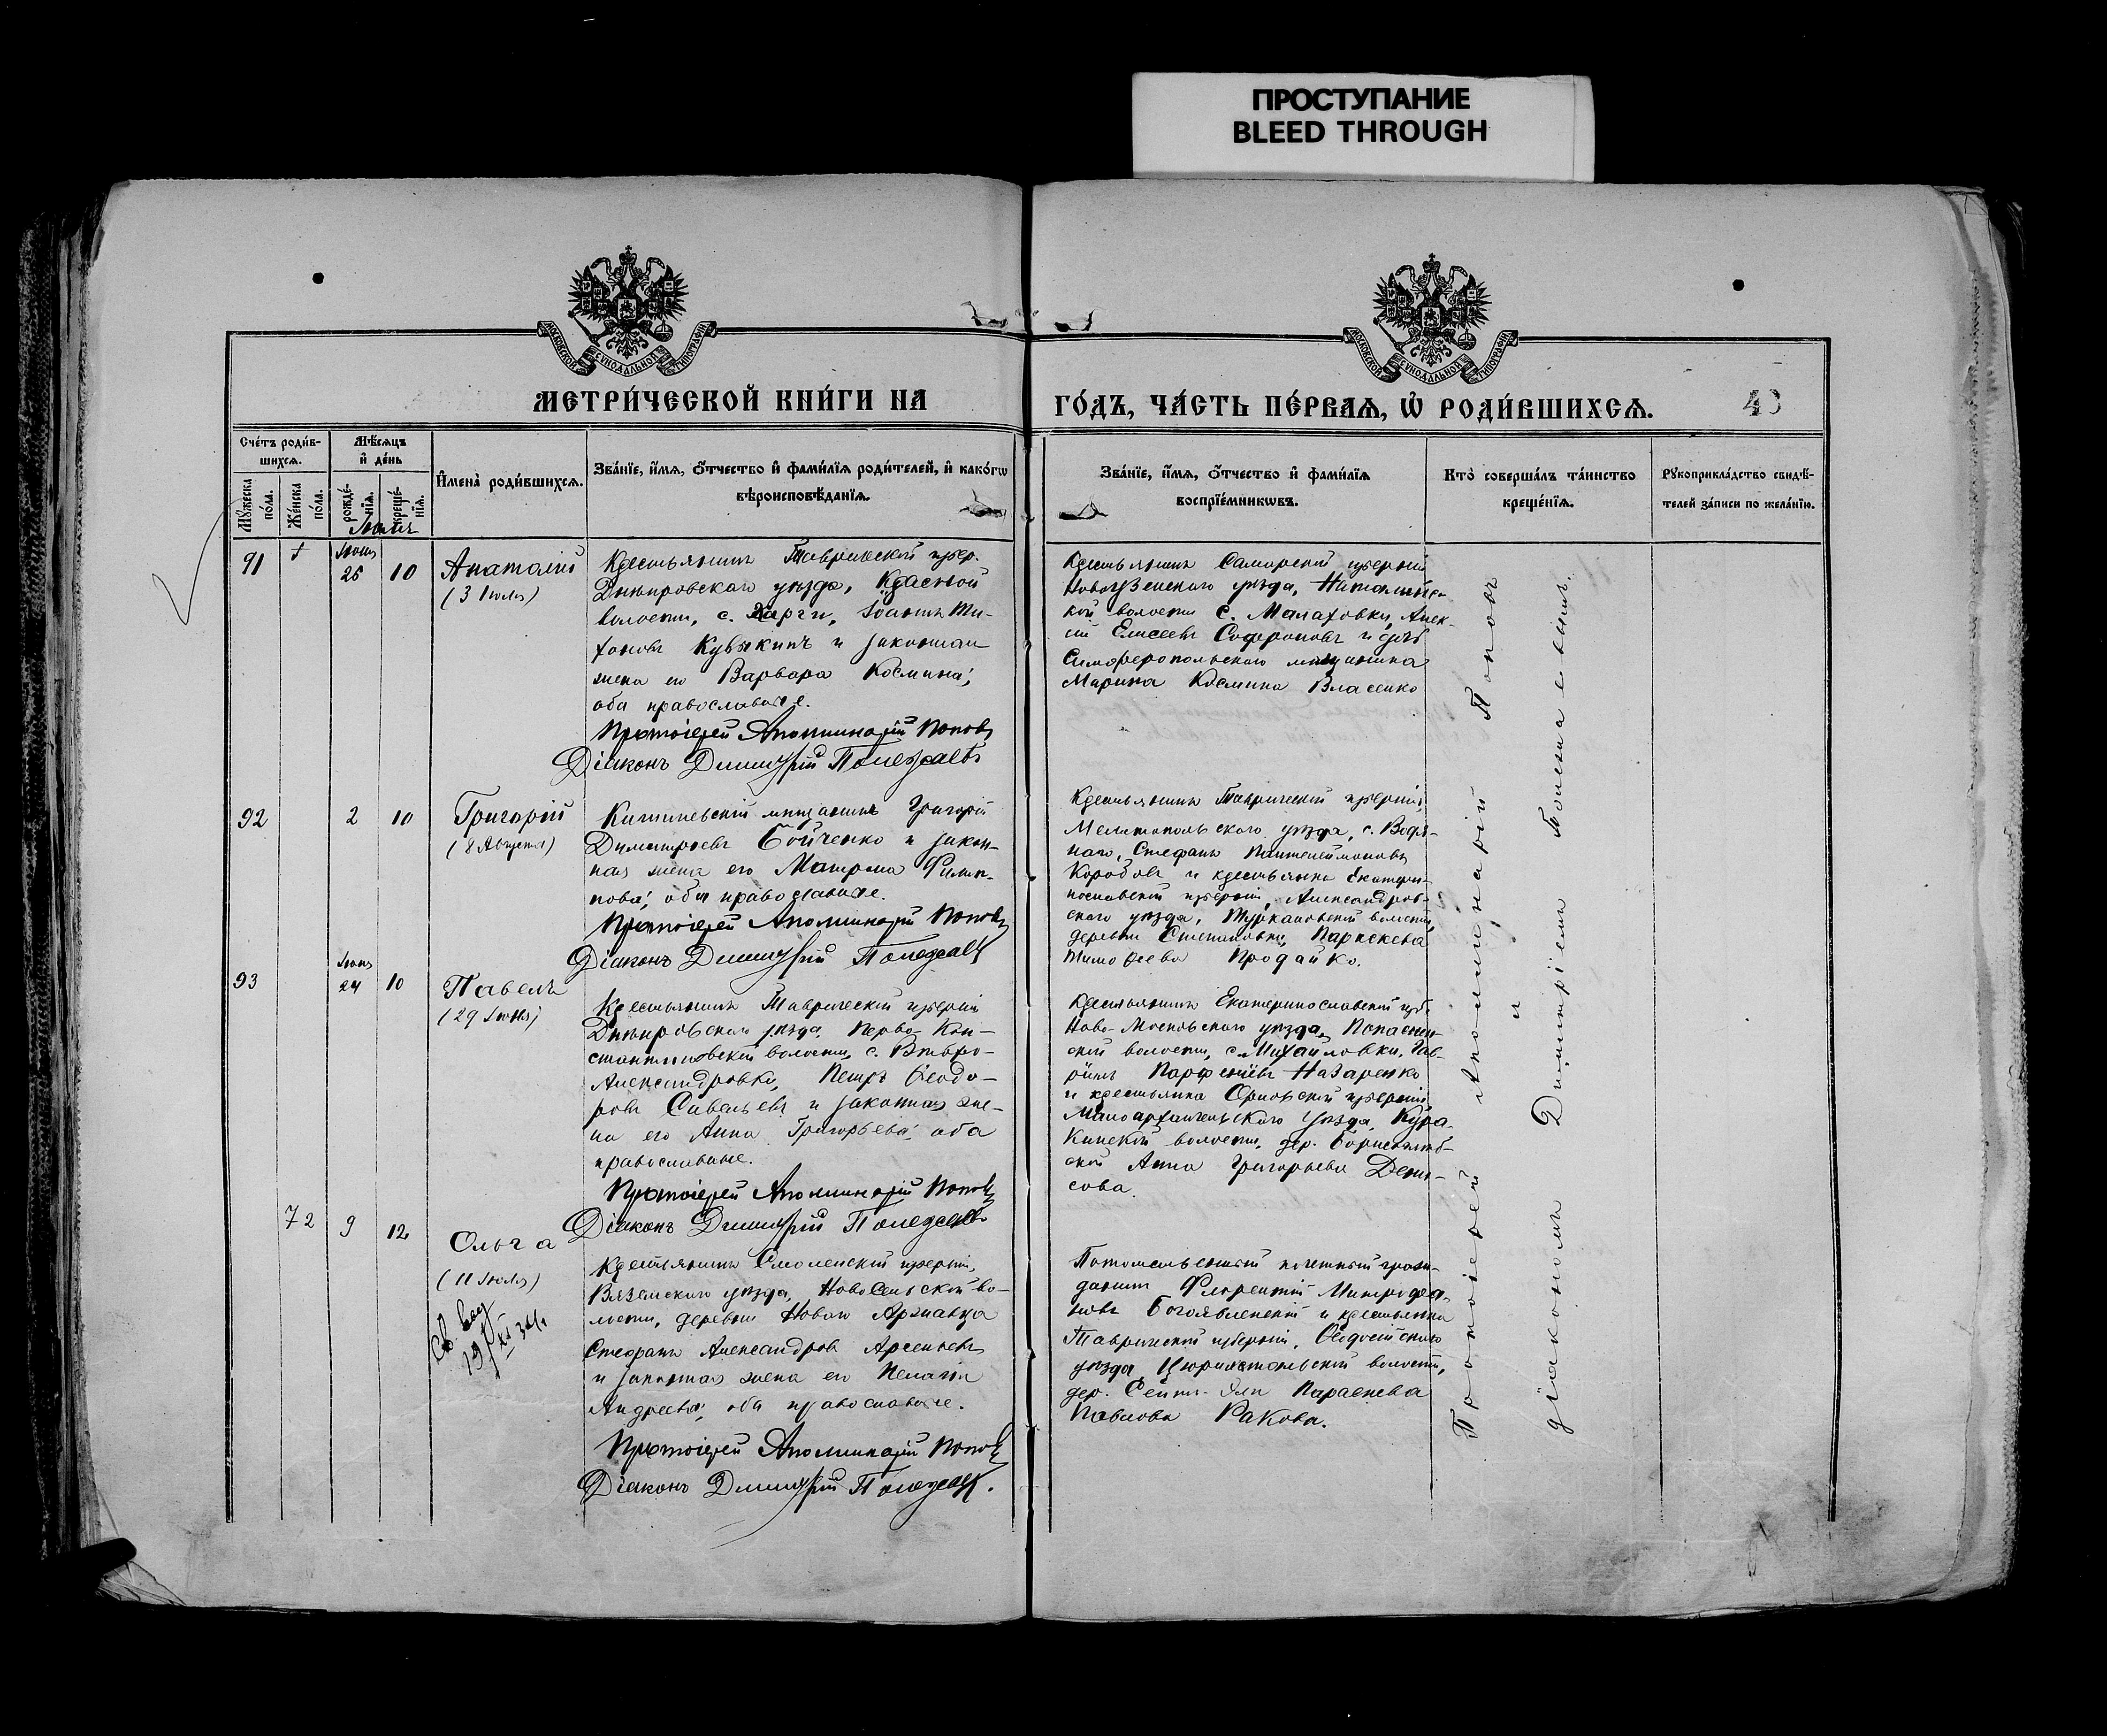 ПРОСТУПАНИЕ
BLEED THROUGH
МОСКОВСКОЙ СѴНОДАЛЬНОЙ ТИПОГРАФІИ
МОСКОВСКОЙ СѴНОДАЛЬНОЙ ТИПОГРАФІИ
МЕТРИ́ЧЕСКОЙ КНИ́ГИ НА
ГО́ДЪ, ЧА́СТЬ ПЕ́РВАѦ, Ѽ РОДИ́ВШИХСѦ.
43
Сче́тъ роди́в-
шихсѧ.
Мѣ́сѧцъ
и҆ де́нь
Мꙋ́жеска по́ла.
Же́нска по́ла.
рожде́-нїѧ.
креще́-нїѧ.
И҆мена̀ роди́вшихсѧ.
Зва́нїе, и҆́мѧ, ѻ҆́тчество и҆ фами́лїѧ роди́телей, и҆ како́гѡ
вѣроисповѣ́данїѧ.
Зва́нїе, и҆́мѧ, ѻ҆́тчество и҆ фами́лїѧ
воспрїе́мникѡвъ.
Кто̀ соверша́лъ та́инство
креще́нїѧ.
Рꙋкоприкла́дство свидѣ́-
телей за́писи по жела́нїю.
Іюль
91
Іюня
25 10
Анатолій
(3 Іюля)
Крестьянинъ Таврической губер.
Днѣпровскаго уѣзда,
волости, с. Ти-
хоновъ Кувыкинъ и законная
жена его Варвара Космина;
оба православные.
Протоіерей Аполлинарій Поповъ
Діаконъ Димитрій Полежаевъ
Крестьянинъ Самарской губерніи
Новоузенскаго уѣзда,
кой волости с. Малаховки, Алек-
ѣй Елисеевъ Софроновъ и дочь
Симферопольскаго мѣщанина
Марина Космина Власенко
92 2 10
Григорій
(8 Августа)
Кишиневскій мѣщанинъ Григорій
Димитріевъ Бойченко и закон-
ная жена его Матрона Филип-
пова; оба православные.
Протоіерей Аполлинарій Поповъ
Діаконъ Димитрій Полежаевъ
Крестьянинъ Таврической губерніи,
Мелитопольскаго уѣзда, с. Водя-
наго, Стефанъ Пантелеймоновъ
Коробовъ и крестьянка Екатери-
нославской губерніи, Александров-
скаго уѣзда, волости,
деревни Степановки, Параскева
Тимоѳеева Продайко.
93
Іюня
24 10
Павелъ
(29 Іюня)
Крестьянинъ Таврической губерніи
Днѣпровскаго уѣзда, Перво-Кон-
стантиновской волости, с. Второ-
Александровки, Петръ Ѳеодо-
ровъ Савельевъ и законная же-
на его Анна Григорьева; оба
православные.
Протоіерей Аполлинарій Поповъ
Діаконъ Димитрій Полежаевъ
Крестьянинъ Екатеринославской губ.
Ново-Московскаго уѣзда, Попаснян-
ской волости, с. Михайловки, Гав-
ріилъ Парфеніевъ Назаренко
и крестьянка Орловской губерніи
Малоархангельскаго уѣзда, Кура-
кинской волости, дер. Борисоглѣб-
ской Анна Григорьева Дени-
сова.
72 9 12
Ольга
(11 Іюля)
Св. выд
19/XI 34
Крестьянинъ Смоленской губерніи,
Вяземскаго уѣзда, Новосельской во-
лости, деревни Новаго
Стефанъ Александровъ Арсеньевъ
и законная жена его Пелагія
Андреева; оба православные.
Протоіерей Аполлинарій Поповъ
Діаконъ Димитрій Полежаевъ.
Потомственный почетный граж-
данинъ Флорентій Митрофа-
новъ Богоявленскій и крестьянка
Таврической губерніи, Ѳеодосійскаго
уѣзда, Цюрихтальской волости,
дер. Сеитъ-Эли Параскева
Павлова Ракова.
Протоіерей Аполлинарій Поповъ
и
діакономъ Димитріемъ Полежаевымъ.